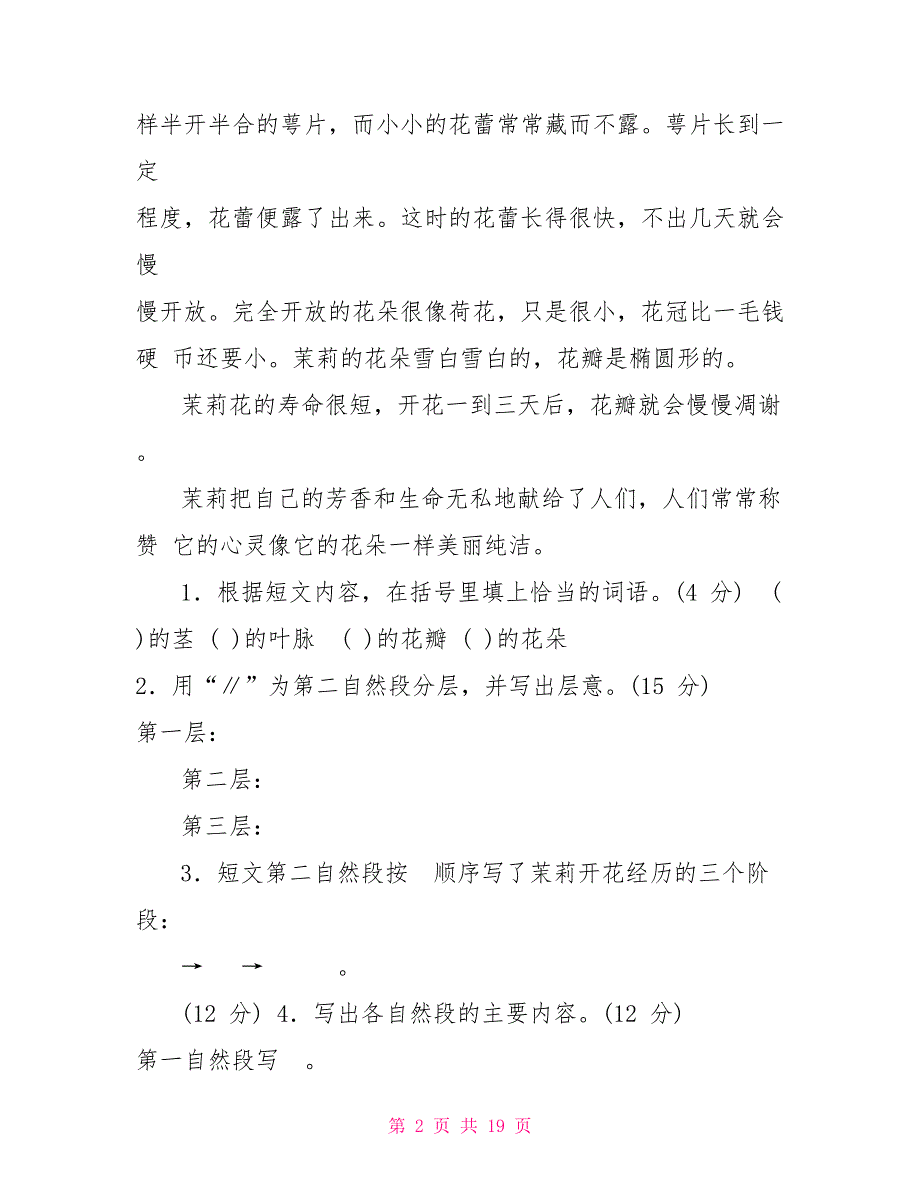 样半开半合的萼片，而小小的花蕾常常藏而不露。萼片长到一
定
程度，花蕾便露了出来。这时的花蕾长得很快，不出几天就会
慢
慢开放。完全开放的花朵很像荷花，只是很小，花冠比一毛钱
硬 币还要小。茉莉的花朵雪白雪白的，花瓣是椭圆形的。
茉莉花的寿命很短，开花一到三天后，花瓣就会慢慢凋谢
。
茉莉把自己的芳香和生命无私地献给了人们，人们常常称
赞 它的心灵像它的花朵一样美丽纯洁。
1．根据短文内容，在括号里填上恰当的词语。(4 分) (
)的茎 ( )的叶脉 ( )的花瓣 ( )的花朵
2．用“∥”为第二自然段分层，并写出层意。(15 分)
第一层：
第二层：
第三层：
3．短文第二自然段按 顺序写了茉莉开花经历的三个阶
段：
→ → 。
(12 分) 4．写出各自然段的主要内容。(12 分)
第一自然段写 。
第 2 页 共 19 页